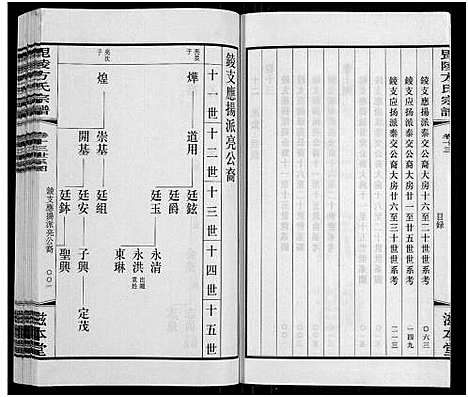 毘陵方氏宗譜
卷十三
目录
錂支應揚派泰交公裔大房十六至二十世世系考
〇六三
錂支应扬派泰交公裔大房廿一至廿五世世系考
一四九
錂支应扬派泰交公裔大房廿六至三十世世系考
二一三
滋本堂
錂支應揚派亮公裔
十一世
十二世
十三世
十四世
十五世
燁
道用
廷鉉
廷爵
廷玉
永清
永洪
出繼
東琳
煌
崇基
廷組
開基
廷安
子興
定茂
廷鉢
聖興
毘陵方氏宗譜
錂支應揚派亮公裔
〇〇一
滋本堂